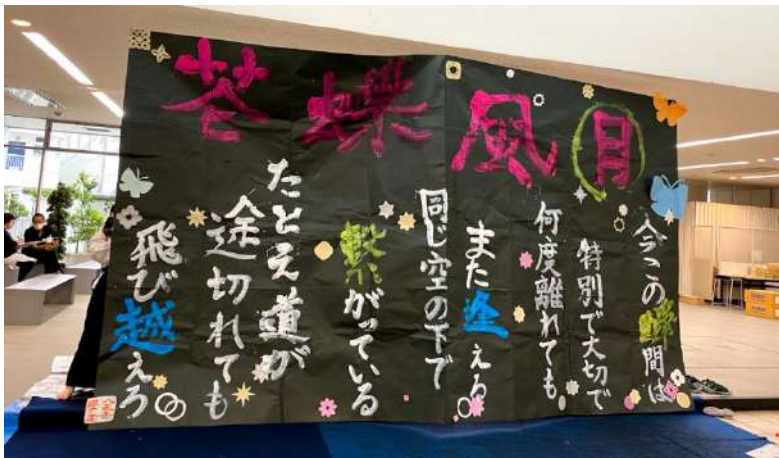 花蝶風月
今この瞬間は
特別で大切で
何度離れても
また逢える
同じ空の下で
繋がっている
たとえ道が
途切れても
飛び越えろ